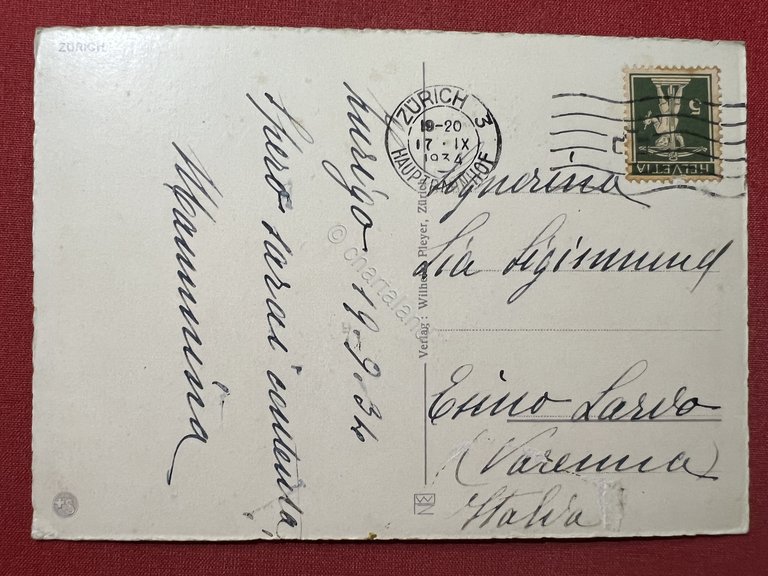 ZÜRICH
Zurigo 19-9-34
Spero sarai contenta,
Mammina
Verlag: Wilhelm Pleyer, Zürich
ZÜRICH 3
19-20
17·IX
1934
HAUPTBAHNHOF
5
HELVETIA
Signorina
Lia Sigismund
Esino Lario
(Varenna)
Italia
© chartaland